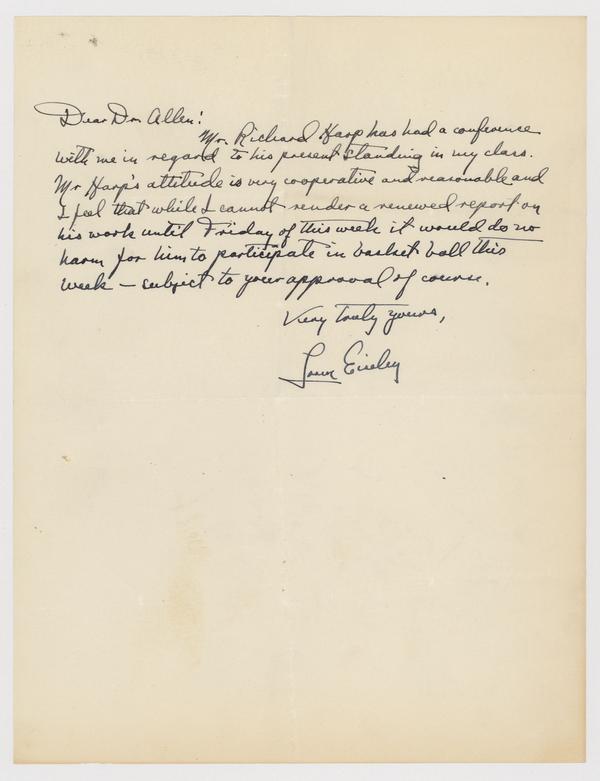 Dear Dr. Allen:
Mr. Richard Harp has had a conference
with me in regard to his present standing in my class.
Mr Harp's attitude is very cooperative and reasonable and
I feel that while I cannot render a renewed report on
his work until Friday of this week it would do no
harm for him to participate in basket ball this
week — subject to your approval of course.
Very truly yours,
Loren Eiseley